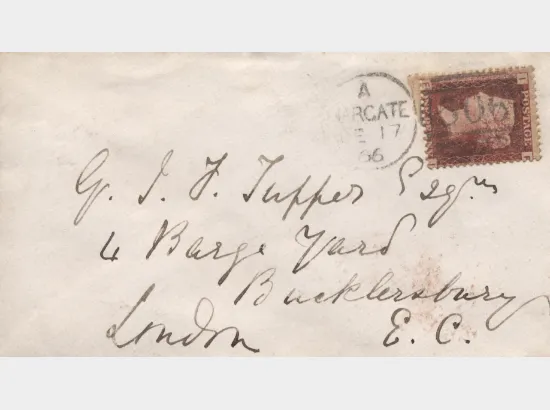 A
MARGATE
17
66
POSTAGE
G. J. F. Tupper Esqre
4 Barge Yard
Bucklersbury
London E. C.